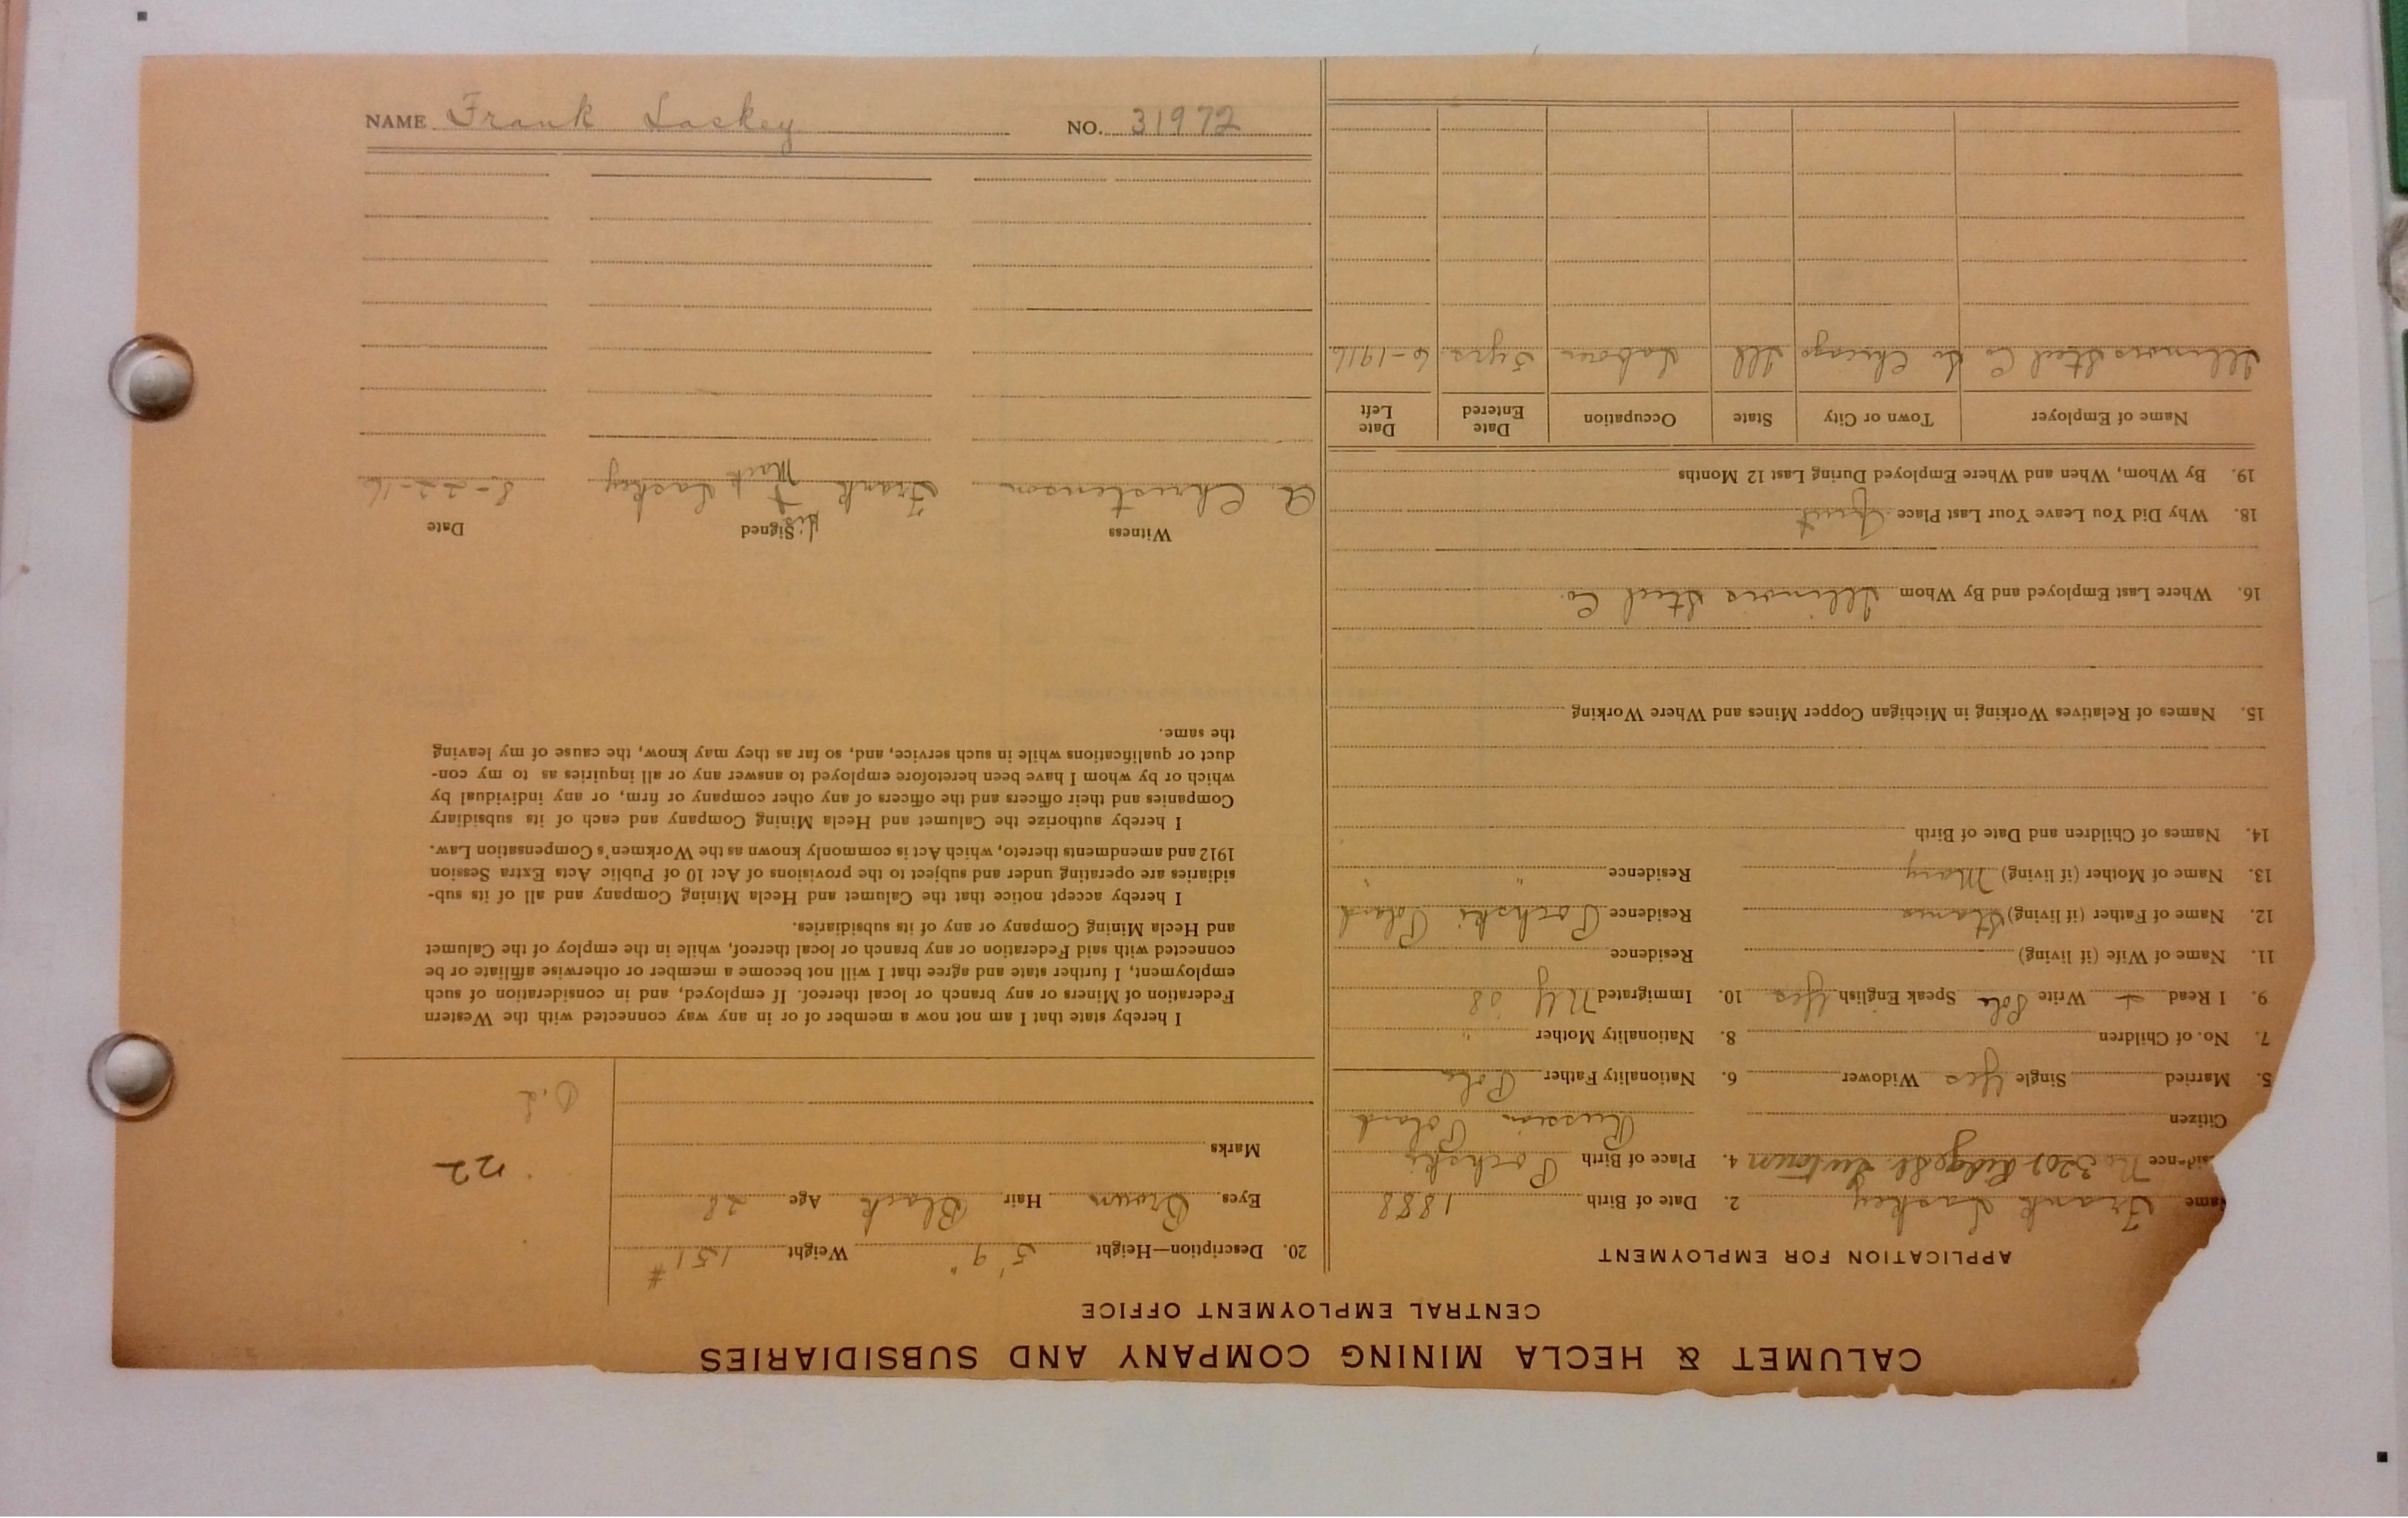 NAME Frank Laskey NO. 31972
CALUMET & HECLA MINING COMPANY AND SUBSIDIARIES
CENTRAL EMPLOYMENT OFFICE
APPLICATION FOR EMPLOYMENT
Name Frank Laskey 2. Date of Birth 1888
No 3207 Ridge St. 4. Place of Birth Pochski
Citizen Russian Poland
5. Married Single Yes Widower 6. Nationality Father Pole
7. No. of Children 8. Nationality Mother "
9. I Read + Write Pole Speak English Yes 10. Immigrated NY 08
11. Name of Wife (if living) Residence
12. Name of Father (if living) Residence Pochski Poland
13. Name of Mother (if living) Mary Residence " "
14. Names of Children and Date of Birth
15. Names of Relatives Working in Michigan Copper Mines and Where Working
16. Where Last Employed and By Whom Illinois Steel Co.
18. Why Did You Leave Your Last Place Quit
19. By Whom, When and Where Employed During Last 12 Months
Name of Employer Town or City State Occupation Date Entered Date Left
Illinois Steel Co So Chicago Ill Labour 5 yrs 6-1916
20. Description—Height 5' 9" Weight 151 #
Eyes Brown Hair Black Age 28
Marks
22
I hereby state that I am not now a member of or in any way connected with the Western
Federation of Miners or any branch or local thereof. If employed, and in consideration of such
employment, I further state and agree that I will not become a member or otherwise affiliate or be
connected with said Federation or any branch or local thereof, while in the employ of the Calumet
and Hecla Mining Company or any of its subsidiaries.
I hereby accept notice that the Calumet and Hecla Mining Company and all of its sub-
sidiaries are operating under and subject to the provisions of Act 10 of Public Acts Extra Session
1912 and amendments thereto, which Act is commonly known as the Workmen's Compensation Law.
I hereby authorize the Calumet and Hecla Mining Company and each of its subsidiary
Companies and their officers and the officers of any other company or firm, or any individual by
which or by whom I have been heretofore employed to answer any or all inquiries as to my con-
duct or qualifications while in such service, and, so far as they may know, the cause of my leaving
the same.
Witness Signed Date
his
A. Christenson Frank + Laskey 8-22-16
Mark